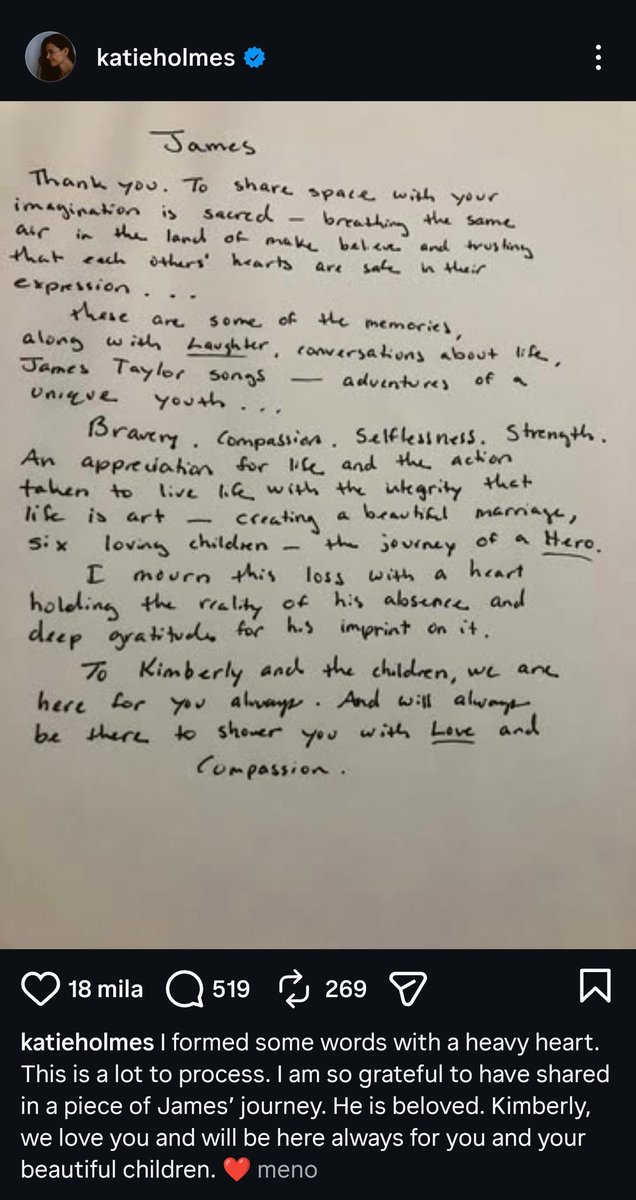 katieholmes
James
Thank you. To share space with your
imagination is sacred — breathing the same
air in the land of make believe and trusting
that each others' hearts are safe in their
expression . . .
these are some of the memories,
along with Laughter, conversations about life,
James Taylor songs — adventures of a
unique youth . . .
Bravery. Compassion. Selflessness. Strength.
An appreciation for life and the action
taken to live life with the integrity that
life is art — creating a beautiful marriage,
six loving children — the journey of a Hero.
I mourn this loss with a heart
holding the reality of his absence and
deep gratitude for his imprint on it.
To Kimberly and the children, we are
here for you always. And will always
be there to shower you with Love and
Compassion.
18 mila 519 269
katieholmes I formed some words with a heavy heart.
This is a lot to process. I am so grateful to have shared
in a piece of James’ journey. He is beloved. Kimberly,
we love you and will be here always for you and your
beautiful children. ❤️ meno